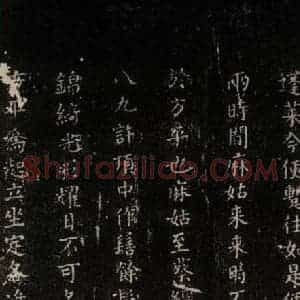 蓬萊今便暫往如是
兩時間麻姑來來時不
於方平也麻姑至蔡經
八九許頂中作髻餘髮
錦綺光彩耀日不可名
方平為起立坐定各進
Shufaziliao.com